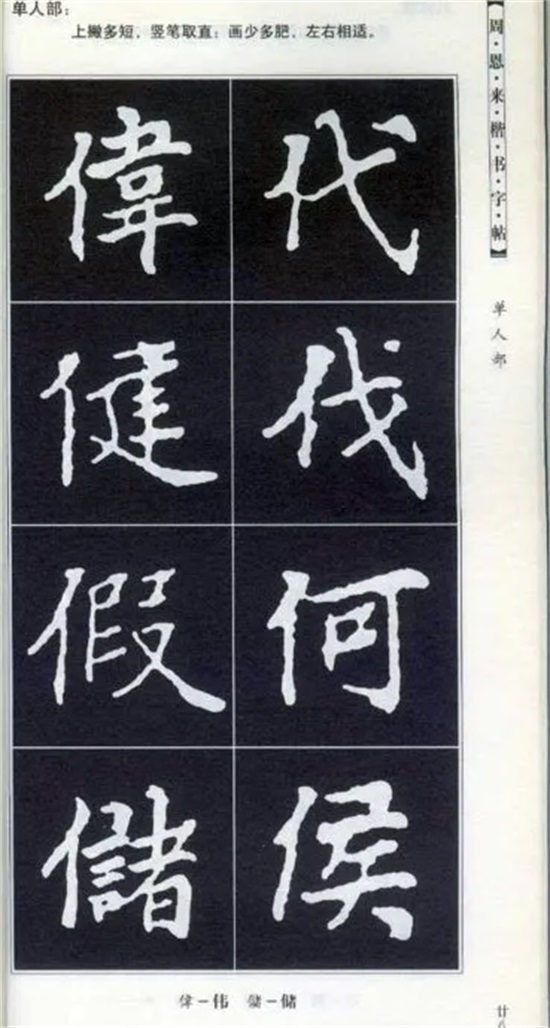 单人部：
上撇多短，竖笔取直；画少多肥，左右相适。
【周·恩·来·楷·书·字·帖】
单人部
代伐何侯
偉健假儲
偉－伟 儲－储